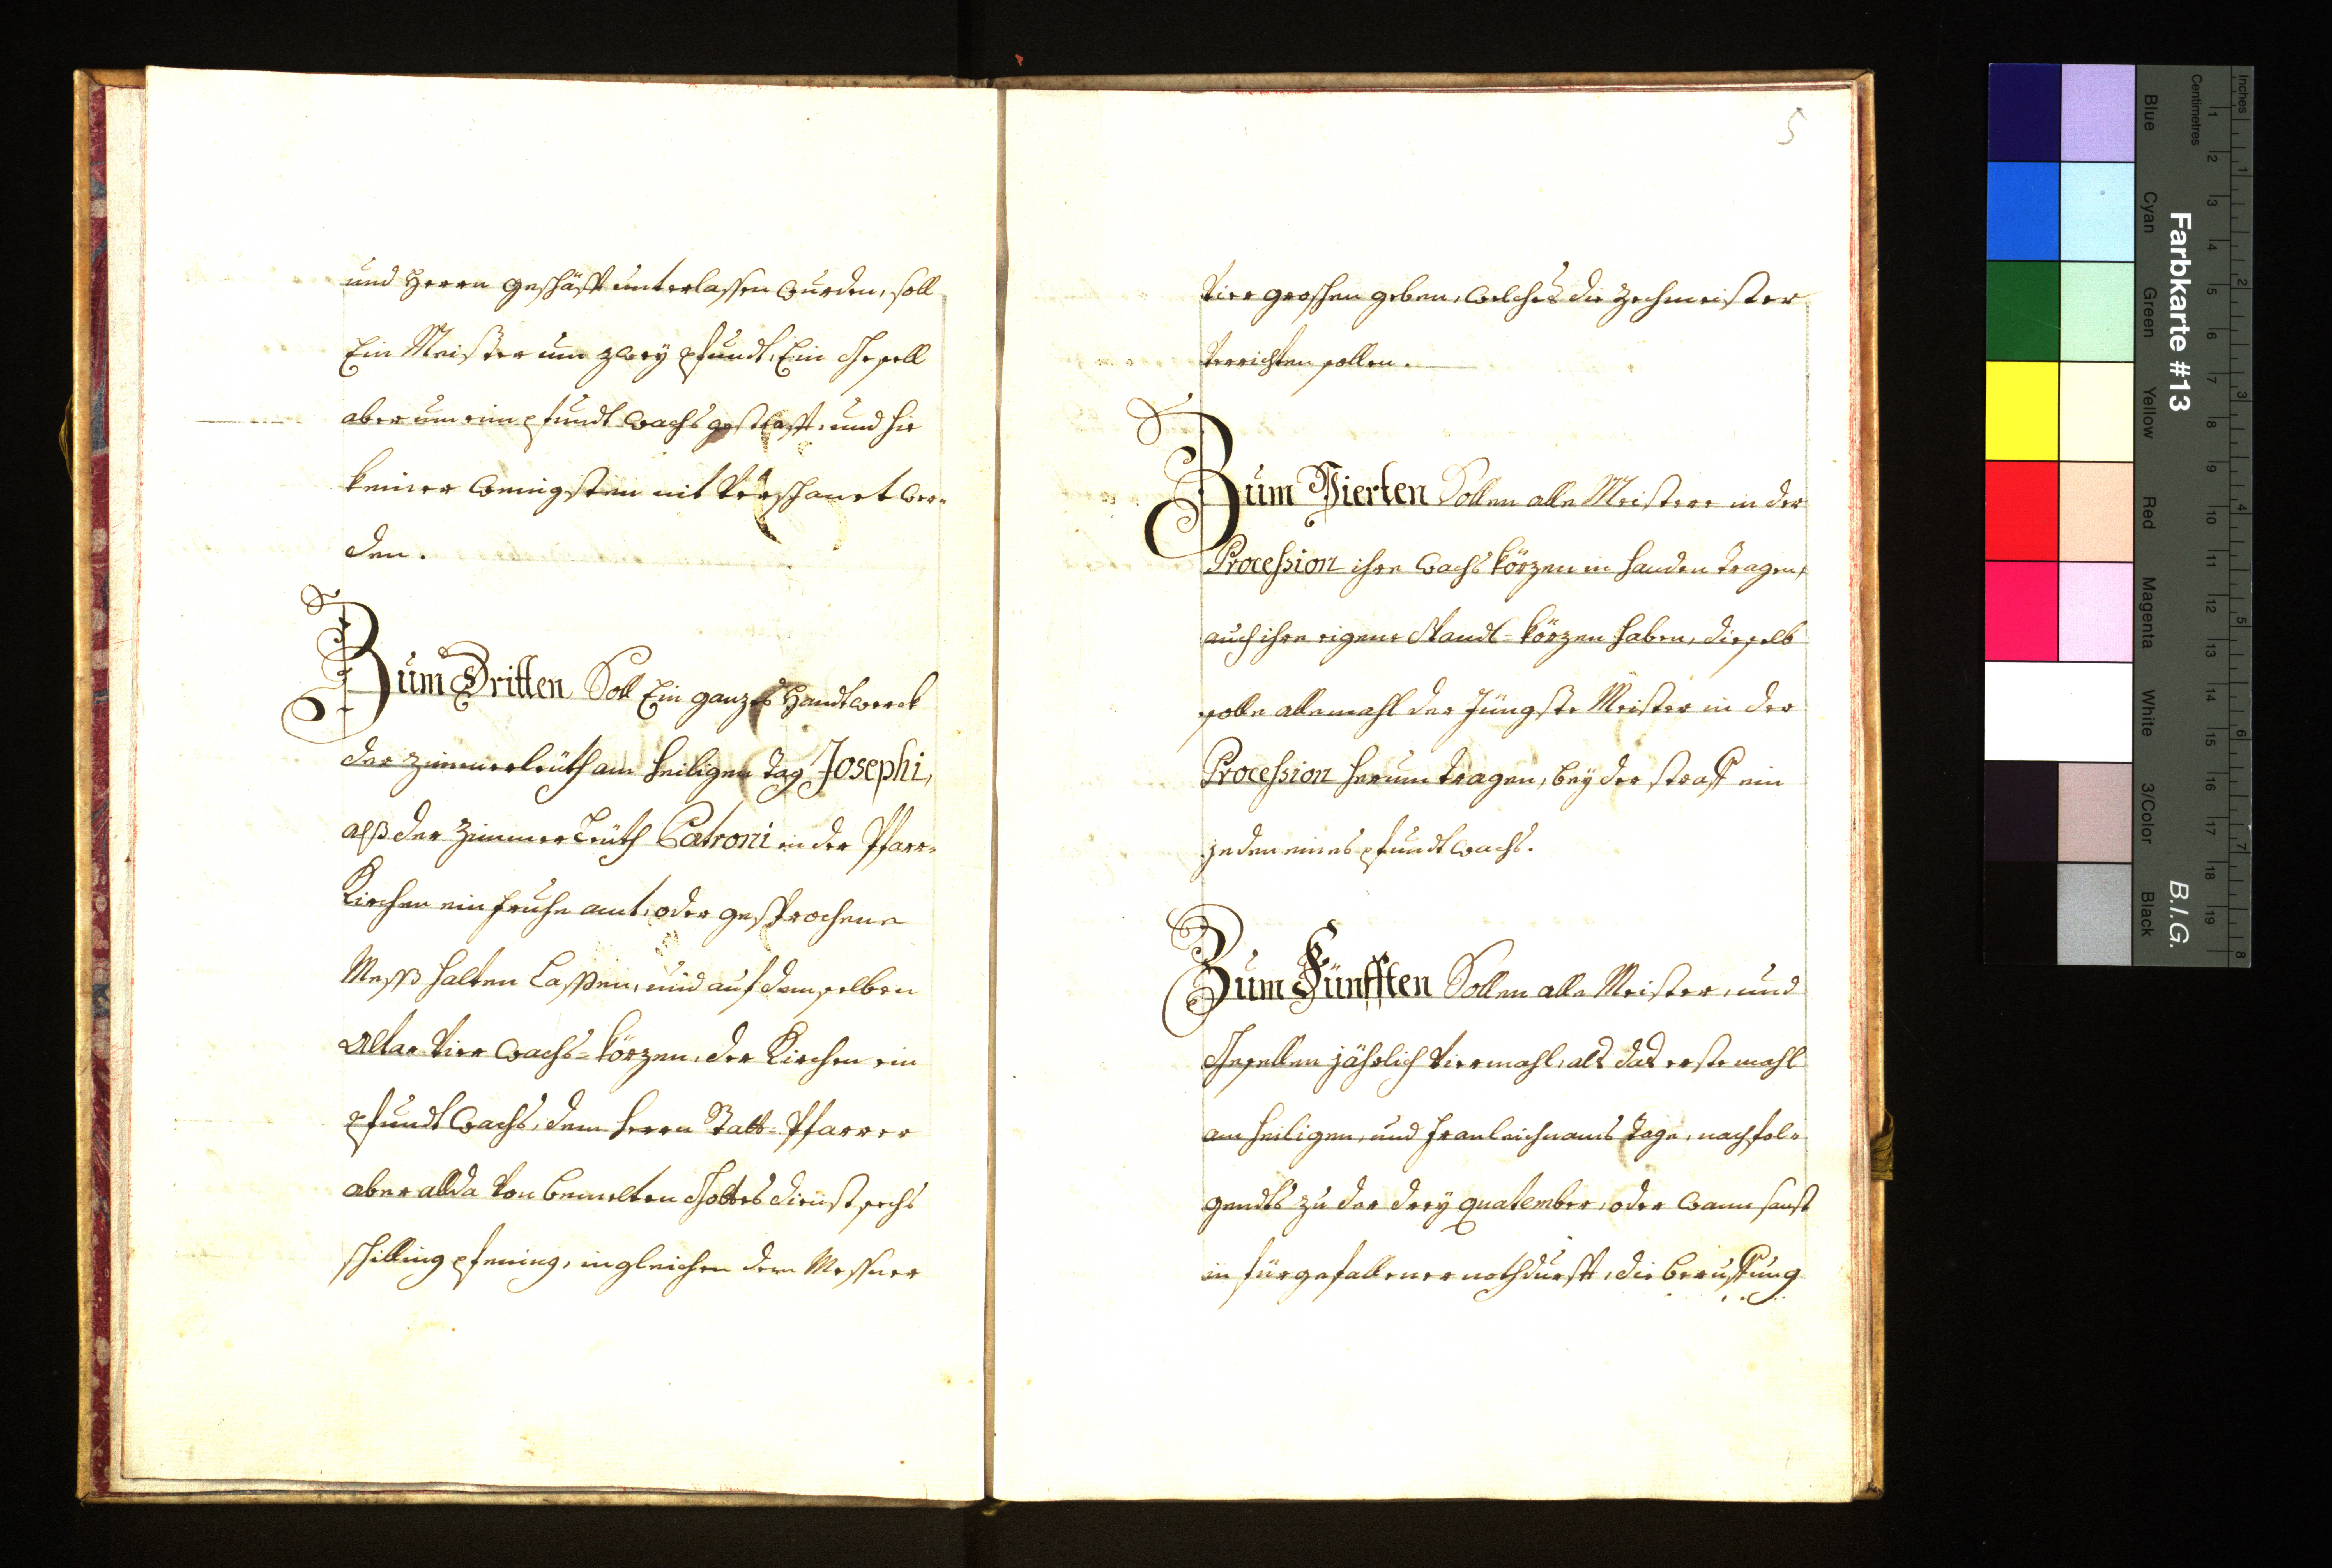 und Herrn geschäfft unterlassen wurden, soll
Ein Meister um zwey pfundt, Ein Gesell
aber um ein pfundt wachs gestrafft, und hie
keiner wenigsten nit verschonet wer-
den.
Zum Dritten Soll Ein ganzes Handtwerck
der zimmerleüth am heiligen tag Josephi,
alß der Zimmerleüth Patroni in der Pfarr-
Kirchen ein fruhe amt, oder gesprochene
Mess halten lassen, und auf demselben
Altar vier wachs-körzen, der Kirchen ein
pfundt wachs, dem herrn Statt-Pfarrer
aber allda von bemelten Gottesdienst sechs
schilling pfening, ingleichen dem Messner
5
vier groschen geben, welches die Zechmeister
verrichten sollen.
Zum Vierten Sollen alle Meistere in der
Procession ihre wachs körzen in handen tragen,
auch ihre eigene Standt-körzen haben, dieselb
solle allemahl der Jüngste Meister in der
Procession herum tragen, bey der straff ein
jeden eines pfundt wachs.
Zum Fünfften Sollen alle Meister, und
Gesellen jährlich viermahl, als das erste mahl
am heiligen, und fronleichnams tage, nachfol-
gendts zu der drey quatember, oder wann sonst
in fürgefallener nothdurfft, die beruffung
Farbkarte #13
B.I.G.
Inches
Centimetres
1
2
3
4
5
6
7
8
9
10
11
12
13
14
15
16
17
18
19
1
2
3
4
5
6
7
8
Blue
Cyan
Green
Yellow
Red
Magenta
White
3/Color
Black